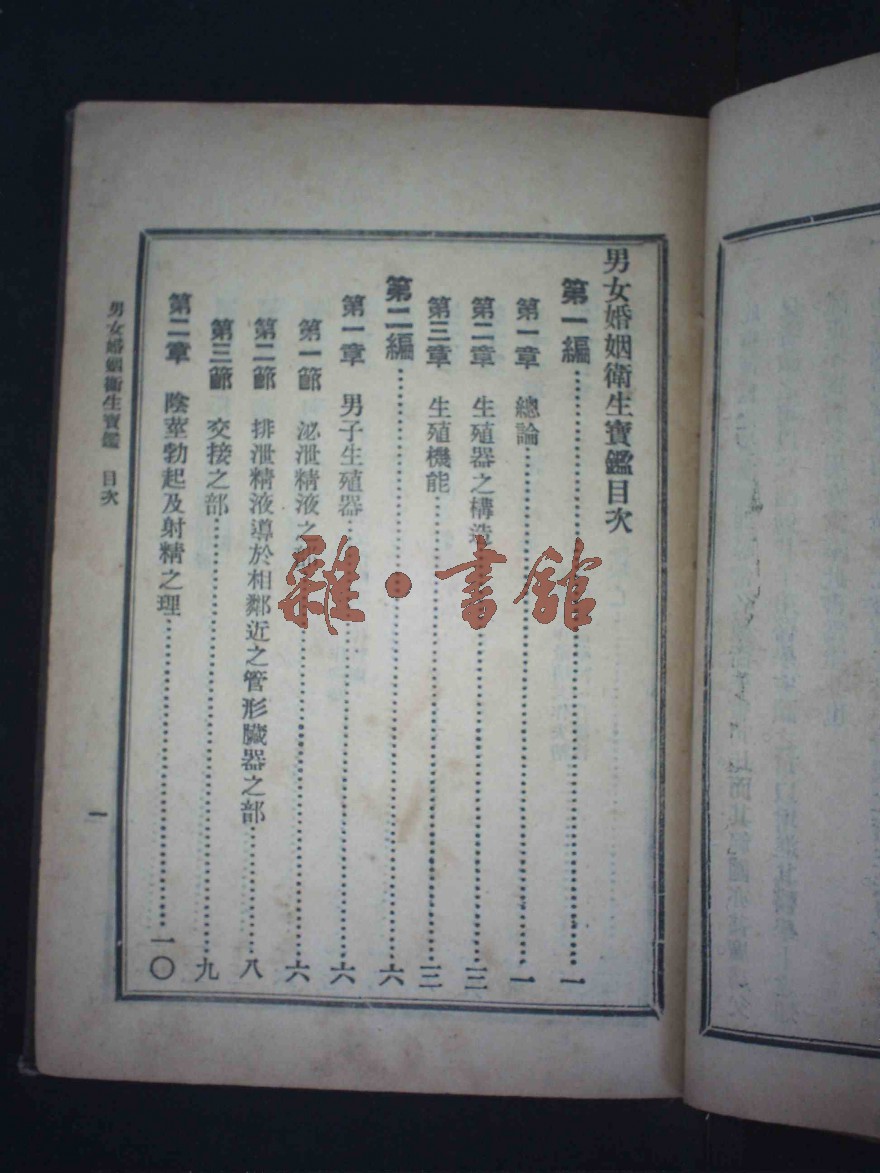 男女婚姻衛生寶鑑目次
第一編…………一
第一章 總論…………一
第二章 生殖器之構造…………三
第三章 生殖機能…………三
第二編…………六
第一章 男子生殖器…………六
第一節 泌泄精液之部…………六
第二節 排泄精液導於相鄰近之管形臟器之部…………八
第三節 交接之部…………九
第二章 陰莖勃起及射精之理…………一〇
男女婚姻衛生寶鑑 目次
一
雜·書館